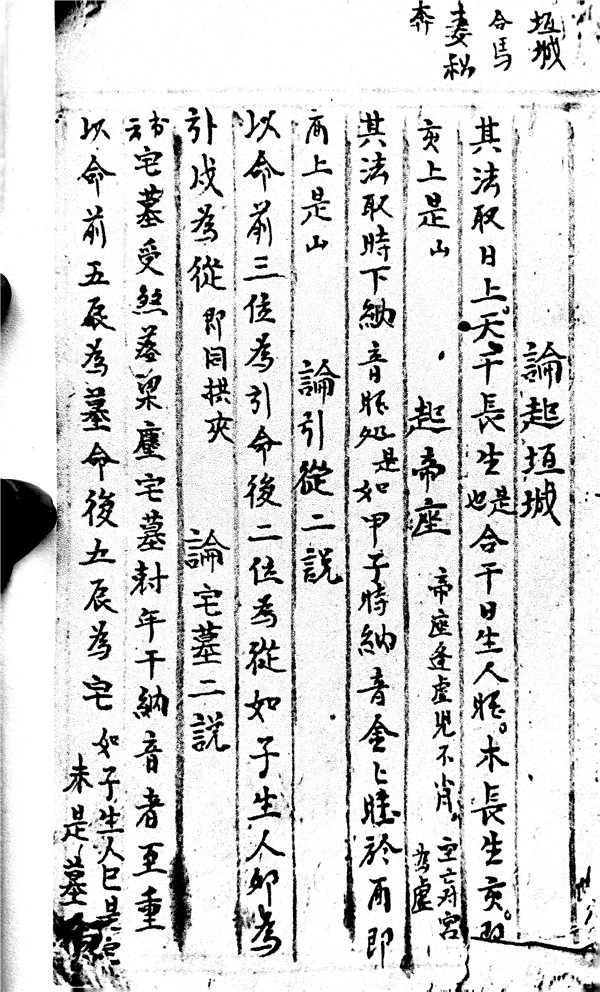 垣城
合馬
妻私
奔
論起垣城
其法取日上天干長生是也合干日生人旺。木長生亥。即
亥上是山 起帝座 帝座逢虛兒不肖。空亡对宮為虛
其法取時下納音旺処是如甲子時納音金金旺於酉即
酉上是山 論引從二說
以命前三位為引命後二位為從如子生人卯為
引戍為從 即同拱夾 論宅墓二說
書云宅墓受煞落梁塵宅墓対年干納音者至重
以命前五辰為墓命後五辰為宅 如子生人巳是宅未是墓